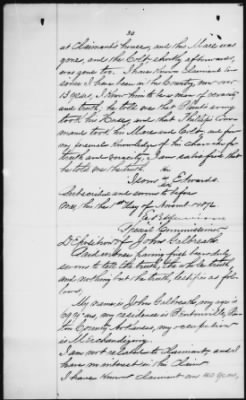 32
at Claimant's house, and the Mare was
gone, and the Colt shortly afterwards,
was gone too. I have Known Claimant
since I have been in this County, now over
15 years, I Know him to be a man of veracity
and truth, he told me that Blunt's army
took his Horse, and that Phillips Com-
mands took his Mare and Colt, and from
my personal Knowledge of his character for
truth and veracity, I am satisfied that
he told me the truth.
Edwards
Subscribed and sworn to before
me, this the day of August 1872
Special Commissioner
Deposition of John Gilbreath
And witness having first been duly
sworn to tell the truth, the whole truth
and nothing but the truth, testifies as fol-
lows,
My name is John Gilbreath, my age is
69 yrs, my residence is Bentonville, Ben-
ton County Arkansas, my occupation
is Merchandizing.
I am not related to Claimant, and I
have no interest in the Claim
I have Known Claimant years,